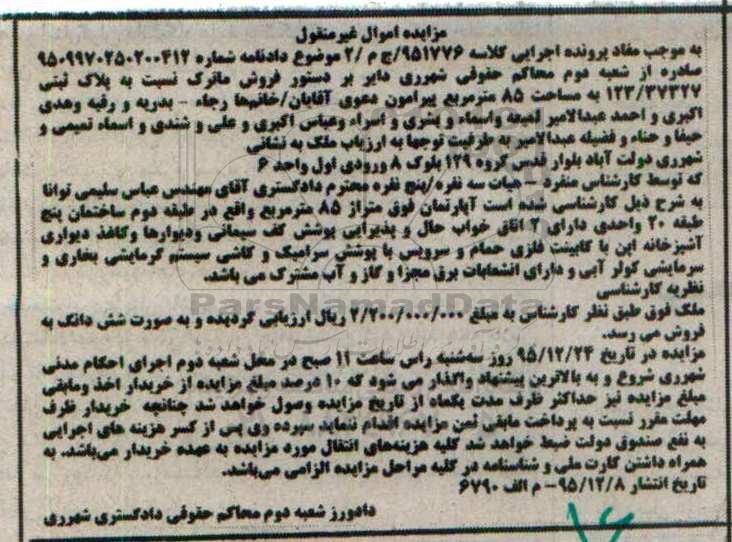 مزایده اموال غیرمنقول
به موجب مفاد پرونده اجرایی کلاسه ۹۵۱۷۷۶/ج م /۲ موضوع دادنامه شماره ۹۵۰۹۹۷۰۲۵۰۲۰۰۴۱۲
صادره از شعبه دوم محاکم حقوقی شهرری دایر بر دستور فروش ماترک نسبت به پلاک ثبتی
۱۲۳/۳۷۳۲۷ به مساحت ۸۵ مترمربع پیرامون دعوی آقایان/خانم‌ها رجاء - بدریه و رقیه وهدی
اکبری و احمد عبدالامیر لمیعه واسماء و بشری و اسراء وعباس اکبری و علی و شندی و اسماء تمیمی و
حیفا و حناء و فضیله عبدالامیر به طرفیت توجها به ارزیاب ملک به نشانی
شهرری دولت آباد بلوار قدس گروه ۱۲۹ بلوک ۸ ورودی اول واحد ۶
که توسط کارشناس منفرد - هیات سه نفره/پنج نفره محترم دادگستری آقای مهندس عباس سلیمی توانا
به شرح ذیل کارشناسی شده است آپارتمان فوق متراژ ۸۵ مترمربع واقع در طبقه دوم ساختمان پنج
طبقه ۲۰ واحدی دارای ۲ اتاق خواب حال و پذیرایی پوشش کف سیمانی ودیوارها وکاغذ دیواری
آشپزخانه اپن با کابینت فلزی حمام و سرویس با پوشش سرامیک و کاشی سیستم گرمایشی بخاری و
سرمایشی کولر آبی و دارای انشعابات برق مجزا و گاز و آب مشترک می باشد.
نظریه کارشناسی
ملک فوق طبق نظر کارشناس به مبلغ ۲/۲۰۰/۰۰۰/۰۰۰ ریال ارزیابی گردیده و به صورت شش دانگ به
فروش می رسد.
مزایده در تاریخ ۹۵/۱۲/۲۴ روز سه‌شنبه راس ساعت ۱۱ صبح در محل شعبه دوم اجرای احکام مدنی
شهرری شروع و به بالاترین پیشنهاد واگذار می شود که ۱۰ درصد مبلغ مزایده از خریدار اخذ ومابقی
مبلغ مزایده نیز حداکثر ظرف مدت یکماه از تاریخ مزایده وصول خواهد شد چنانچه خریدار ظرف
مهلت مقرر نسبت به پرداخت مابقی ثمن مزایده اقدام ننماید سپرده وی پس از کسر هزینه های اجرایی
به نفع صندوق دولت ضبط خواهد شد کلیه هزینه‌های انتقال مورد مزایده به عهده خریدار می‌باشد. به
همراه داشتن کارت ملی و شناسنامه در کلیه مراحل مزایده الزامی می‌باشد.
تاریخ انتشار ۹۵/۱۲/۸- م الف ۶۷۹۰
دادورز شعبه دوم محاکم حقوقی دادگستری شهرری
ParsNamadData